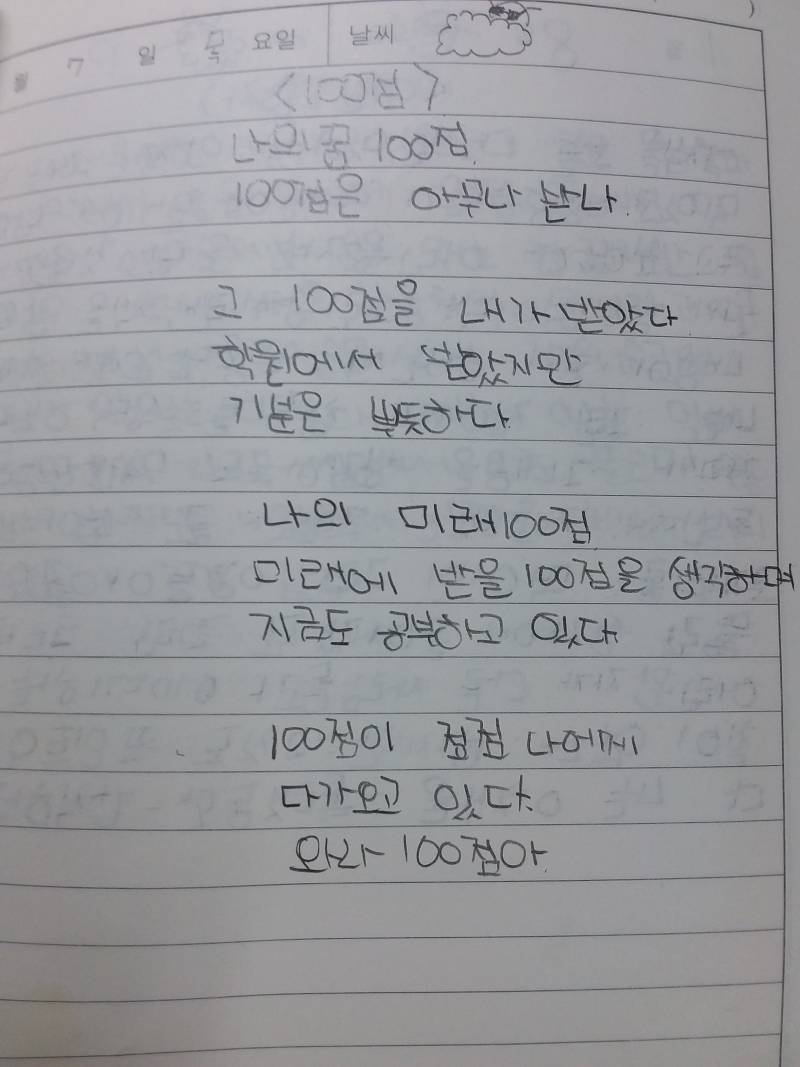 월 7 일 목 요일 날씨
<100점>
나의 꿈 100점.
100점은 아무나 받나.
그 100점을 내가 받았다.
학원에서 받았지만
기분은 뿌듯하다.
나의 미래 100점.
미래에 받을 100점을 생각하며
지금도 공부하고 있다.
100점이 점점 나에게
다가오고 있다.
와라 100점아.